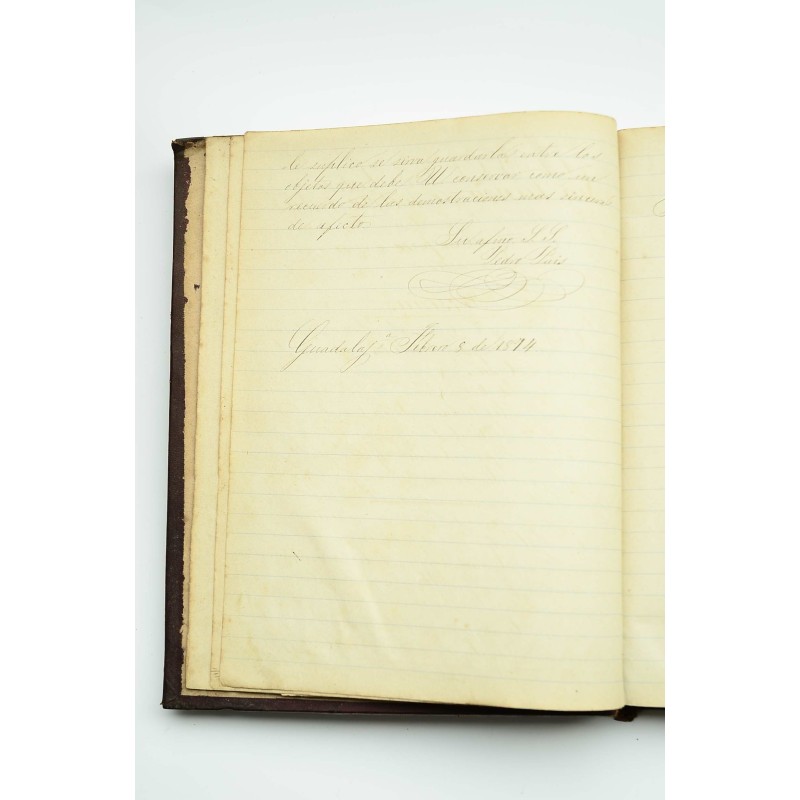 le suplico se sirva guardarlos entre los
objetos que debe U conservar como un
recuerdo de las demostraciones mas sinceras
de afecto
Su afmo S. S.
Pedro
Guadalaj.ª Febrero 8 de 1874